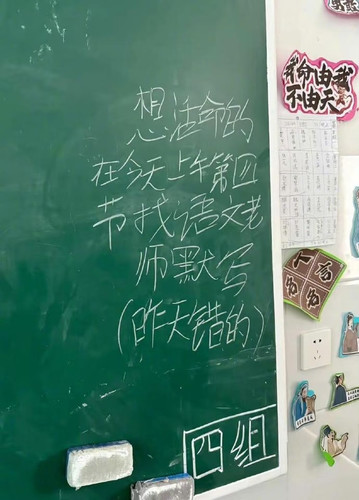 想活命的
在今天上午第四
节找语文老
师默写
(昨天错的)
四组
我命由我
不由天